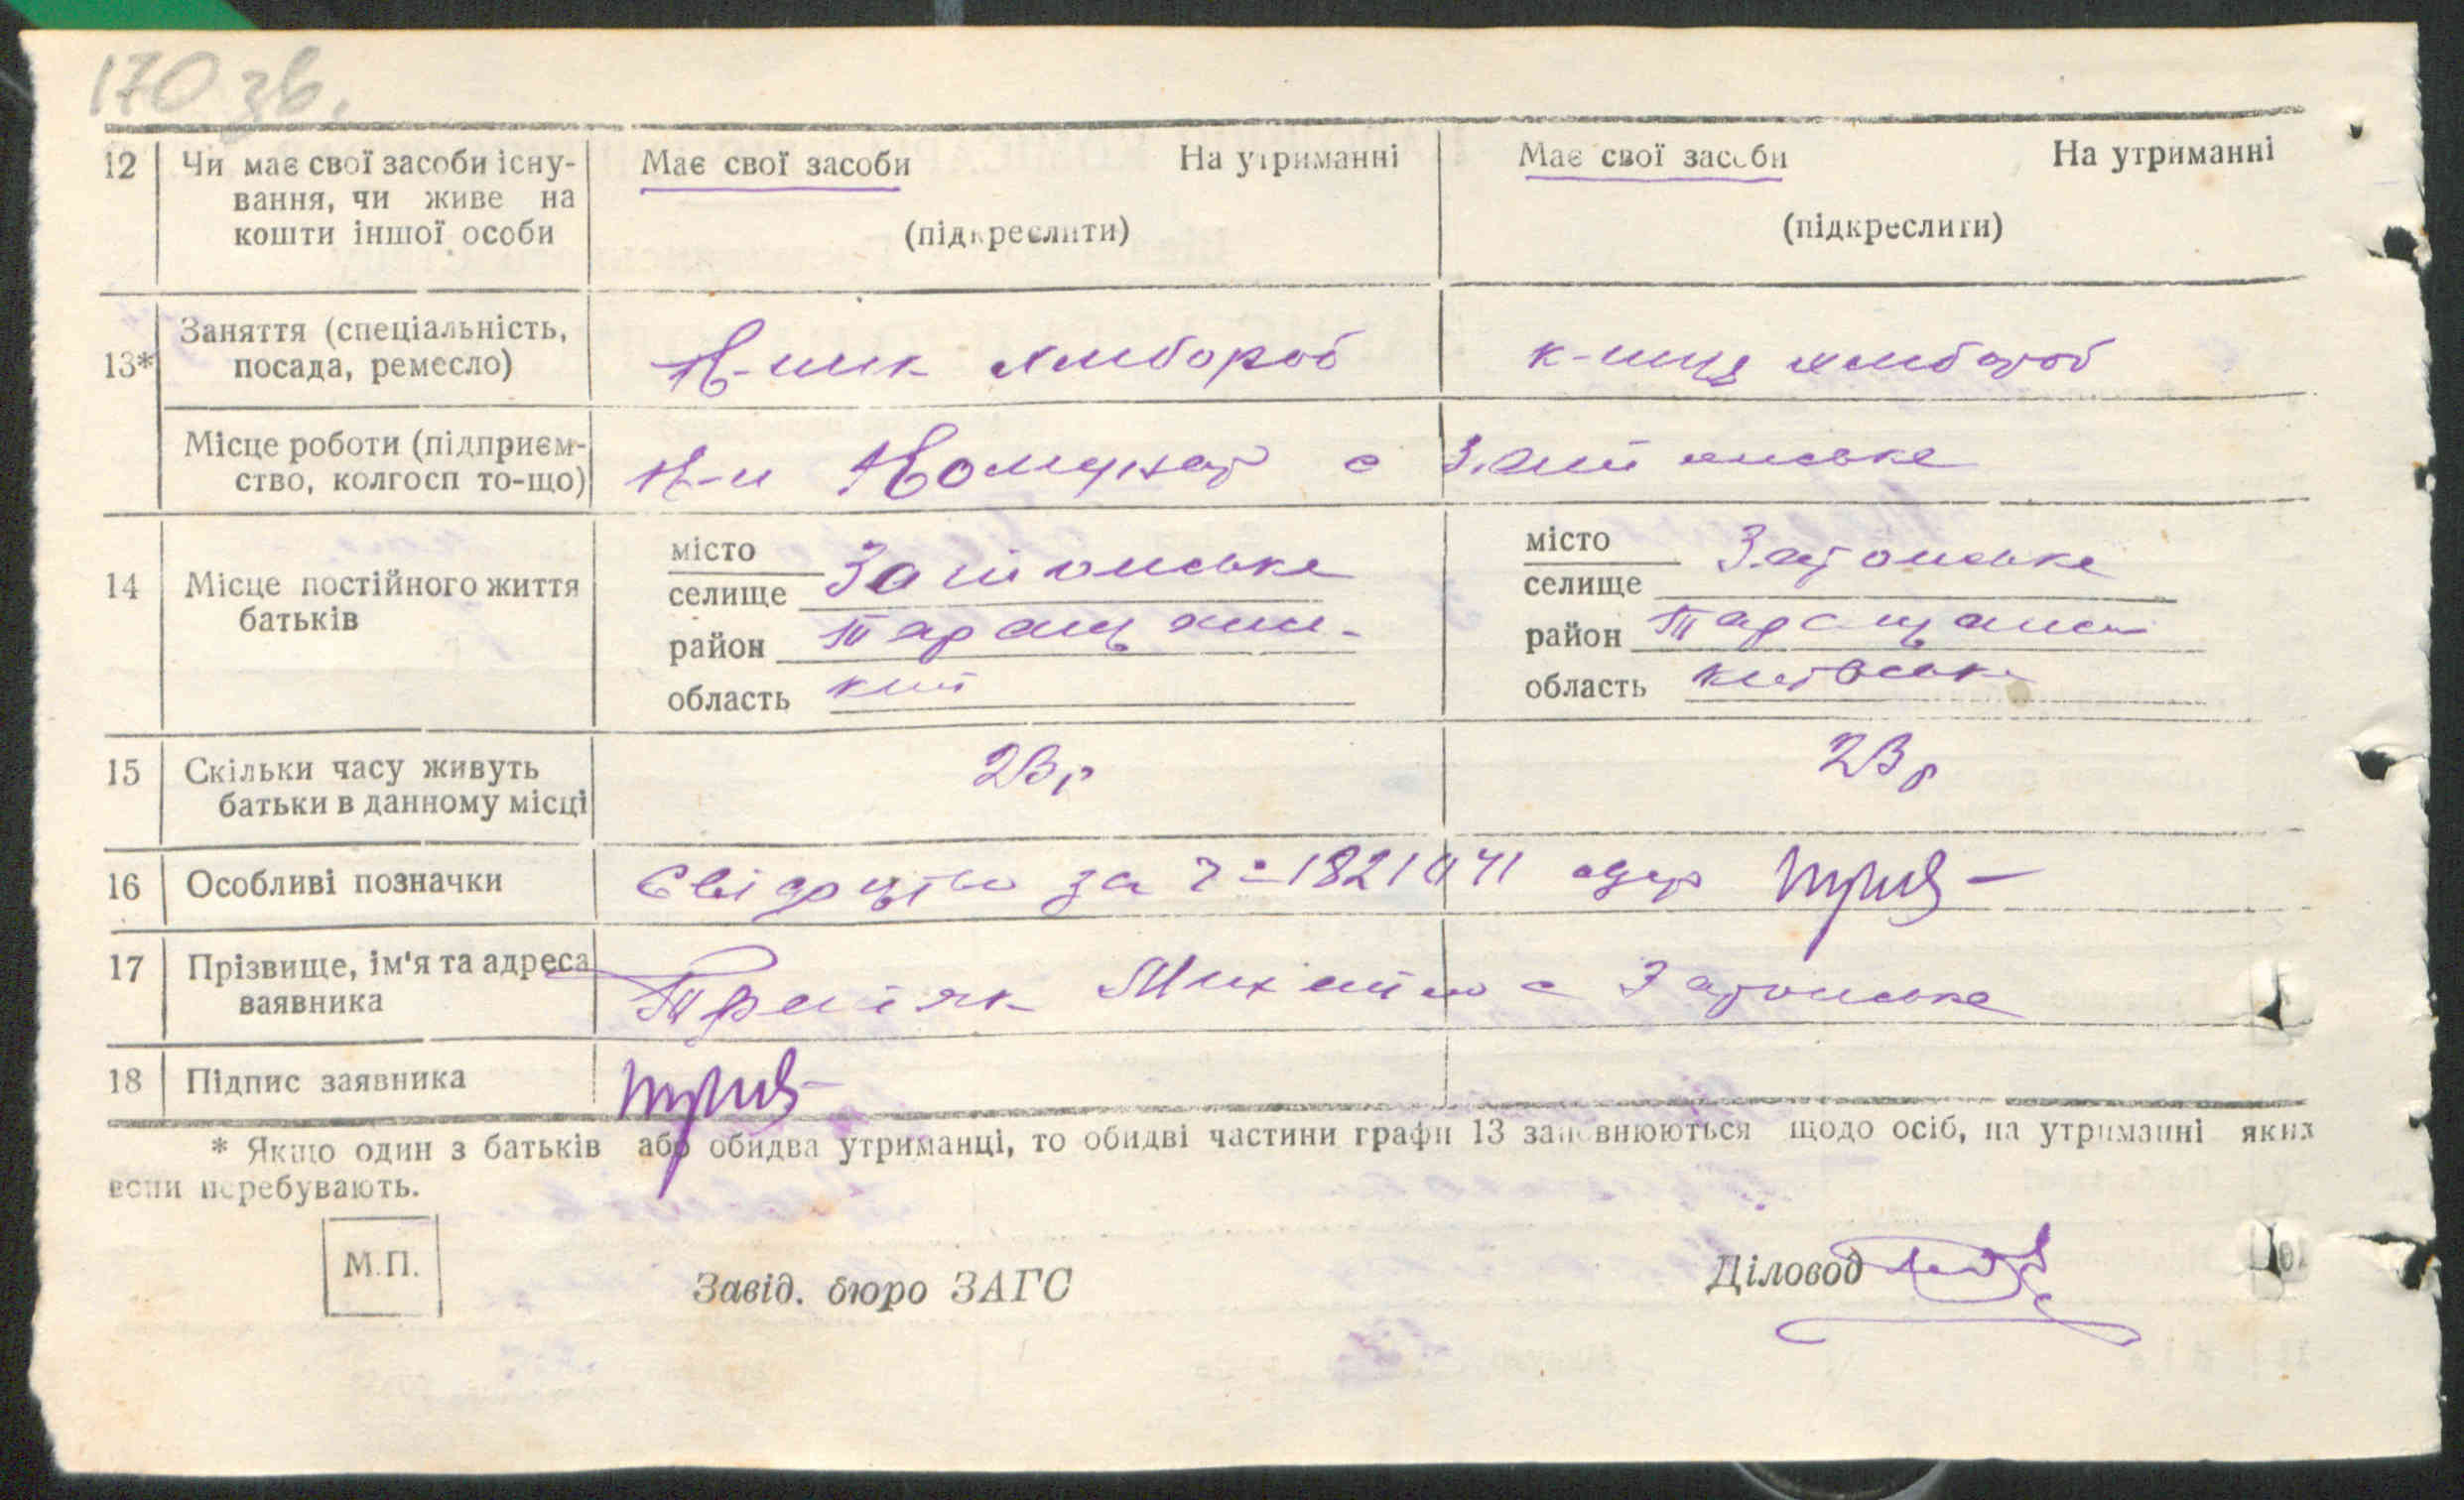 170 зв.
12 Чи має свої засоби існу- Має свої засоби На утриманні Має свої засоби На утриманні
вання, чи живе на
кошти іншої особи (підкреслити) (підкреслити)
Заняття (спеціальність,
13* посада, ремесло) К-ник хлібороб к-ниця хлібороб
Місце роботи (підприєм-
ство, колгосп то-що) К-п Комунар с
14 Місце постійного життя
батьків
місто
селище Затонське
район Таращан.
область киї
місто
селище Затонське
район Таращанськ
область київська
15 Скільки часу живуть 23 р 23 р
батьки в данному місці
16 Особливі позначки Свідоцтво за № 1821041 одер
17 Прізвище, ім'я та адреса
заявника Михайло с Затонське
18 Підпис заявника
* Якщо один з батьків або обидва утриманці, то обидві частини графи 13 заповнюються щодо осіб, на утриманні яких
вони перебувають.
М.П.
Завід. бюро ЗАГС Діловод